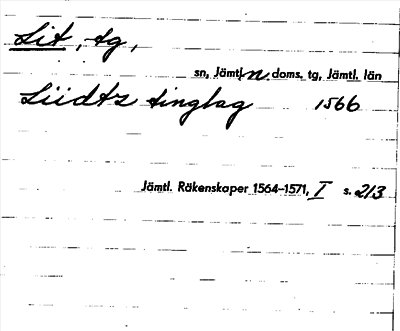 Lit, tg,
sn, Jämtl. n. doms. tg, Jämtl. län
Liidtz tinglag 1566
Jämtl. Räkenskaper 1564–1571, I s. 213